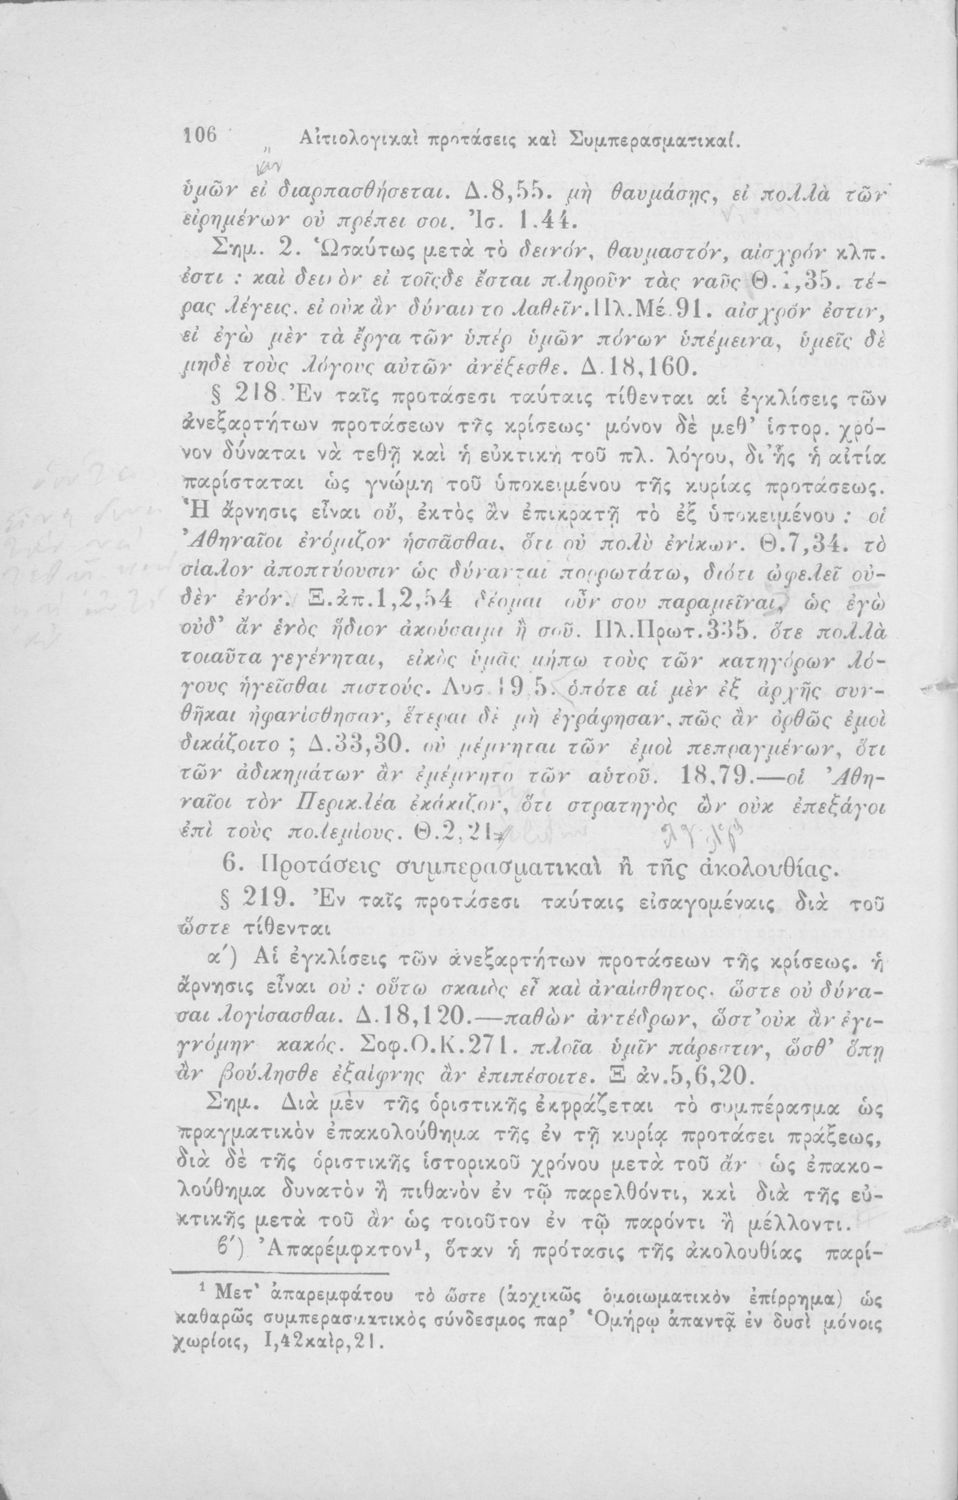 106 Αἰτιολογικαὶ προτάσεις καὶ Συμπερασματικαί.
ὑμῶν εἰ διαρπασθήσεται. Δ.8,55. μὴ θαυμάσῃς, εἰ πολλὰ τῶν
εἰρημένων οὐ πρέπει σοι. Ἰσ. 1.44.
Σημ. 2. Ὡσαύτως μετὰ τὸ δεινόν, θαυμαστόν, αἰσχρόν κλπ.
ἐστι : καὶ δεινὸν εἰ τοῖςδε ἔσται πληροῦν τὰς ναῦς Θ.1,35. τέ-
ρας λέγεις. εἰ οὐκ ἂν δύναιντο λαθεῖν. Πλ.Μέ.91. αἰσχρόν ἐστιν,
εἰ ἐγὼ μὲν τὰ ἔργα τῶν ὑπέρ ὑμῶν πόνων ὑπέμεινα, ὑμεῖς δὲ
μηδὲ τοὺς λόγους αὐτῶν ἀνέξεσθε. Δ.18,160.
§ 218. Ἐν ταῖς προτάσεσι ταύταις τίθενται αἱ ἐγκλίσεις τῶν
ἀνεξαρτήτων προτάσεων τῆς κρίσεως· μόνον δὲ μεθ' ἱστορ. χρό-
νον δύναται νὰ τεθῇ καὶ ἡ εὐκτικὴ τοῦ πλ. λόγου, δι' ἧς ἡ αἰτία
παρίσταται ὡς γνώμη τοῦ ὑποκειμένου τῆς κυρίας προτάσεως.
Ἡ ἄρνησις εἶναι οὔ, ἐκτὸς ἂν ἐπικρατῇ τὸ ἐξ ὑποκειμένου : οἱ
Ἀθηναῖοι ἐνόμιζον ἡσσᾶσθαι, ὅτι οὐ πολὺ ἐνίκων. Θ.7,34. τὸ
σίαλον ἀποπτύουσιν ὡς δύνανται πορρωτάτω, διότι ὠφελεῖ οὐ-
δὲν ἐνόν. Ξ.ἀπ.1,2,54 δέομαι οὖν σου παραμεῖναι, ὡς ἐγὼ
οὐδ' ἂν ἑνὸς ἥδιον ἀκούσαιμι ἢ σοῦ. Πλ.Πρωτ.335. ὅτε πολλὰ
τοιαῦτα γεγένηται, εἰκὸς ὑμᾶς μήπω τοὺς τῶν κατηγόρων λό-
γους ἡγεῖσθαι πιστούς. Λυσ.19,5. ὁπότε αἱ μὲν ἐξ ἀρχῆς συν-
θῆκαι ἠφανίσθησαν, ἕτεραι δὲ μὴ ἐγράφησαν, πῶς ἂν ὀρθῶς ἐμοὶ
δικάζοιτο ; Δ.33,30. οὐ μέμνηται τῶν ἐμοὶ πεπραγμένων, ὅτι
τῶν ἀδικημάτων ἂν ἐμέμνητο τῶν αὑτοῦ. 18,79.—οἱ Ἀθη-
ναῖοι τὸν Περικλέα ἐκάκιζον, ὅτι στρατηγὸς ὢν οὐκ ἐπεξάγοι
ἐπὶ τοὺς πολεμίους. Θ.2,21.
6. Προτάσεις συμπερασματικαὶ ἢ τῆς ἀκολουθίας.
§ 219. Ἐν ταῖς προτάσεσι ταύταις εἰσαγομέναις διὰ τοῦ
ὥστε τίθενται
α΄) Αἱ ἐγκλίσεις τῶν ἀνεξαρτήτων προτάσεων τῆς κρίσεως. ἡ
ἄρνησις εἶναι οὐ : οὕτω σκαιὸς εἶ καὶ ἀναίσθητος. ὥστε οὐ δύνα-
σαι λογίσασθαι. Δ.18,120.—παθὼν ἀντέδρων, ὥστ' οὐκ ἂν ἐγι-
γνόμην κακός. Σοφ.Ο.Κ.271. πλοῖα ὑμῖν πάρεστιν, ὥσθ' ὅπῃ
ἂν βούλησθε ἐξαίφνης ἂν ἐπιπέσοιτε. Ξ ἀν.5,6,20.
Σημ. Διὰ μὲν τῆς ὁριστικῆς ἐκφράζεται τὸ συμπέρασμα ὡς
πραγματικὸν ἐπακολούθημα τῆς ἐν τῇ κυρίᾳ προτάσει πράξεως,
διὰ δὲ τῆς ὁριστικῆς ἱστορικοῦ χρόνου μετὰ τοῦ ἄν ὡς ἐπακο-
λούθημα δυνατὸν ἢ πιθανὸν ἐν τῷ παρελθόντι, καὶ διὰ τῆς εὐ-
κτικῆς μετὰ τοῦ ἂν ὡς τοιοῦτον ἐν τῷ παρόντι ἢ μέλλοντι.
β΄) Ἀπαρέμφατον¹, ὅταν ἡ πρότασις τῆς ἀκολουθίας παρί-
¹ Μετ' ἀπαρεμφάτου τὸ ὥστε (ἀρχικῶς ὁμοιωματικὸν ἐπίρρημα) ὡς
καθαρῶς συμπερασματικὸς σύνδεσμος παρ' Ὁμήρῳ ἀπαντᾷ ἐν δυσὶ μόνοις
χωρίοις, Ι,42καὶρ,21.